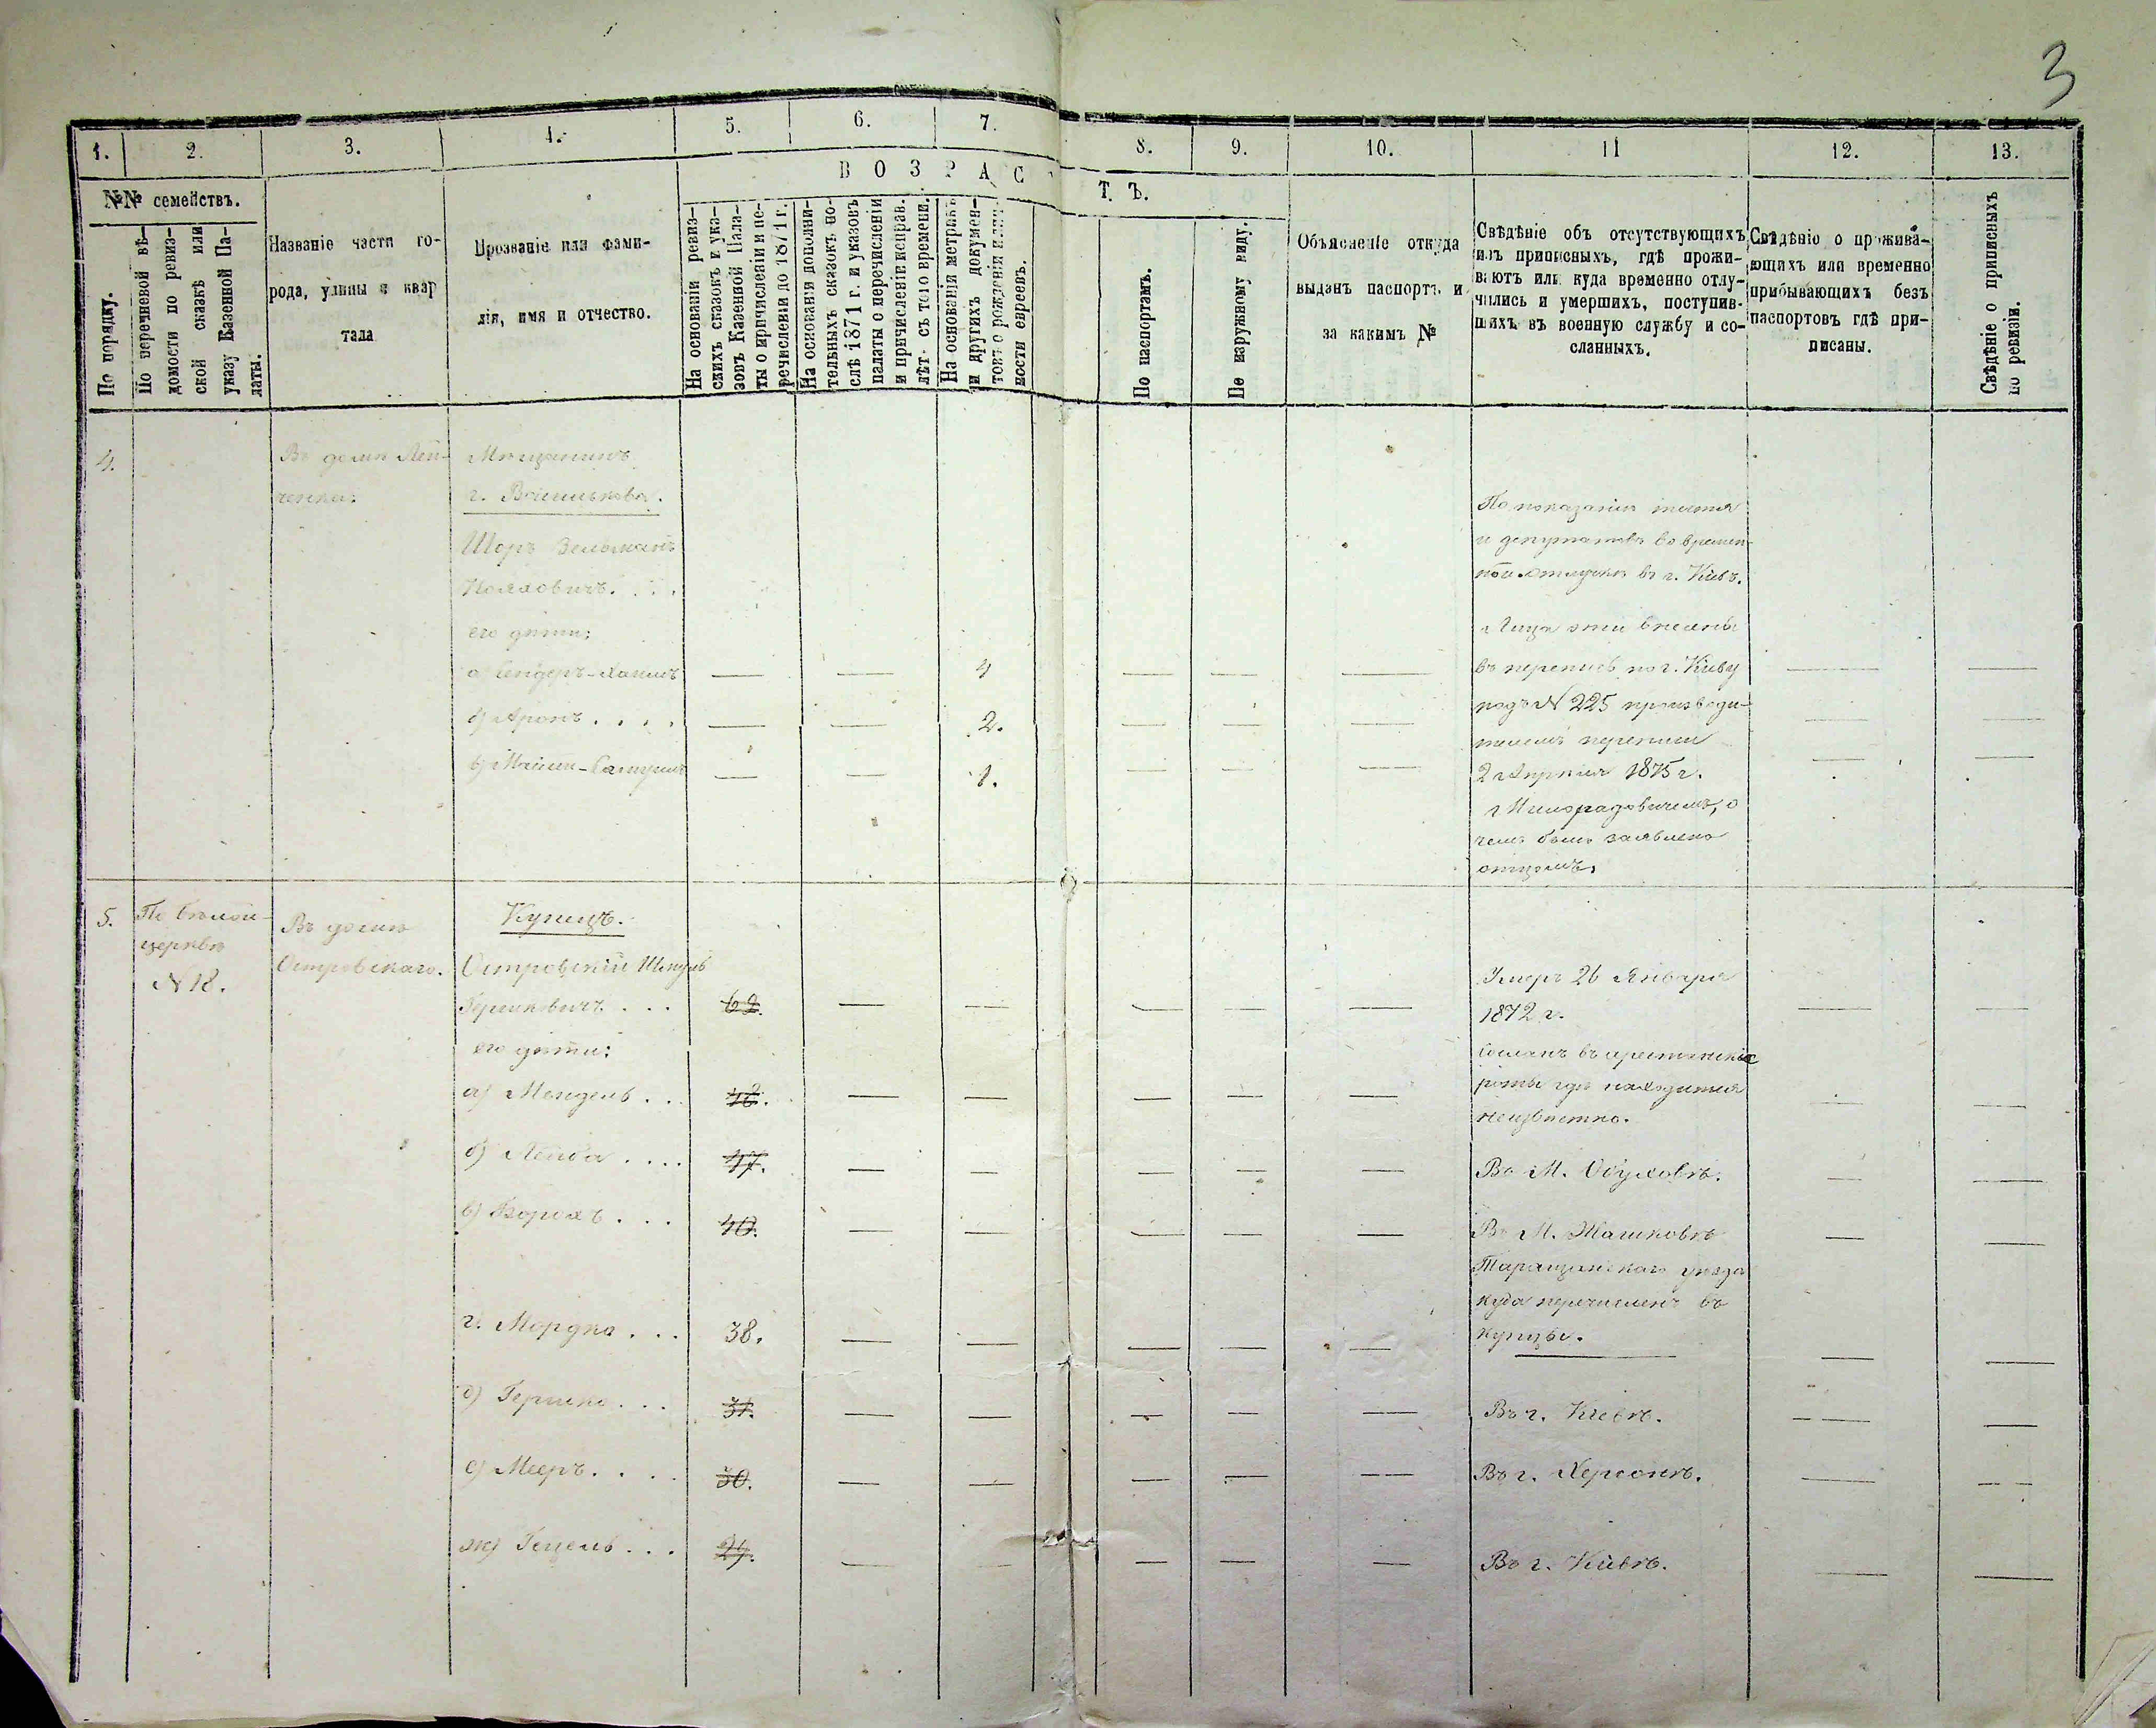 3
1.
2.
3.
4.
5.
6.
7.
8.
9.
10.
11
12.
13.
№№ семействъ.
ВОЗРАСТЪ.
По порядку.
По перечневой вѣ-
домости по ревиз-
ской сказкѣ или
указу Казенной Па-
латы.
Названіе части го-
рода, улицы и квар
тала
Прозваніе или фами-
лія, имя и отчество.
На основаніи ревиз-
скихъ сказокъ и ука-
зовъ Казенной Пала-
ты о причисленіи и пе-
речисленіи до 1871 г.
На основаніи дополни-
тельныхъ сказокъ по-
слѣ 1871 г. и указовъ
палаты о перечисленіи
и причисленіи исправ.
лѣт. съ того времени.
На основаніи метрикъ
и другихъ докумен-
товъ о рожденіи и лич-
ности евреевъ.
По паспортамъ.
По наружному виду.
Объясненіе откуда
выданъ паспортъ и
за какимъ №
Свѣдѣніе объ отсутствующихъ
изъ приписныхъ, гдѣ прожи-
ваютъ или куда временно отлу-
чились и умершихъ, поступив-
шихъ въ военную службу и со-
сланныхъ.
Свѣдѣніе о прожива-
ющихъ или временно
прибывающихъ безъ
паспортовъ гдѣ при-
писаны.
Свѣдѣніе о приписныхъ
по ревизіи.
4.
Въ домѣ Лей-
ченка.
Мѣщанинъ
г. Василькова.
Шоръ Зельманъ
его дѣти:
а) Сендеръ-Хаимъ
4
б) Аронъ . . . .
2.
1.
По показанію тестя
и депутатовъ во времен-
ной отлучкѣ въ г. Кіевъ.
Лица эти внесены
въ перепись по г. Кіеву
подъ N 225 производи-
телемъ переписи
2 Апрѣля 1875 г.
г Милорадовичемъ, о
чемъ было заявлено
отцомъ.
5.
По Бѣлой-
церквѣ
N 18.
Въ домѣ
Островскаго.
Купецъ.
Островскій Шмуль
Гершковичъ . . .
62.
его дѣти:
а) Мендель . . .
48.
б) Лейба . . . .
47.
в) Борохъ . . .
40.
г. Мордко . . .
38.
д) Гершко . . .
31.
е) Мееръ . . . .
30.
ж) Гецель . . .
Умеръ 26 Января
1872 г.
Сосланъ въ арестанскіе
роты гдѣ находится
неизвѣстно.
Въ М. Обуховѣ.
Въ М. Жашковѣ
Таращанскаго уѣзда
куда перечисленъ въ
купцы.
Въ г. Кіевѣ.
Въ г. Херсонѣ.
Въ г. Кіевѣ.